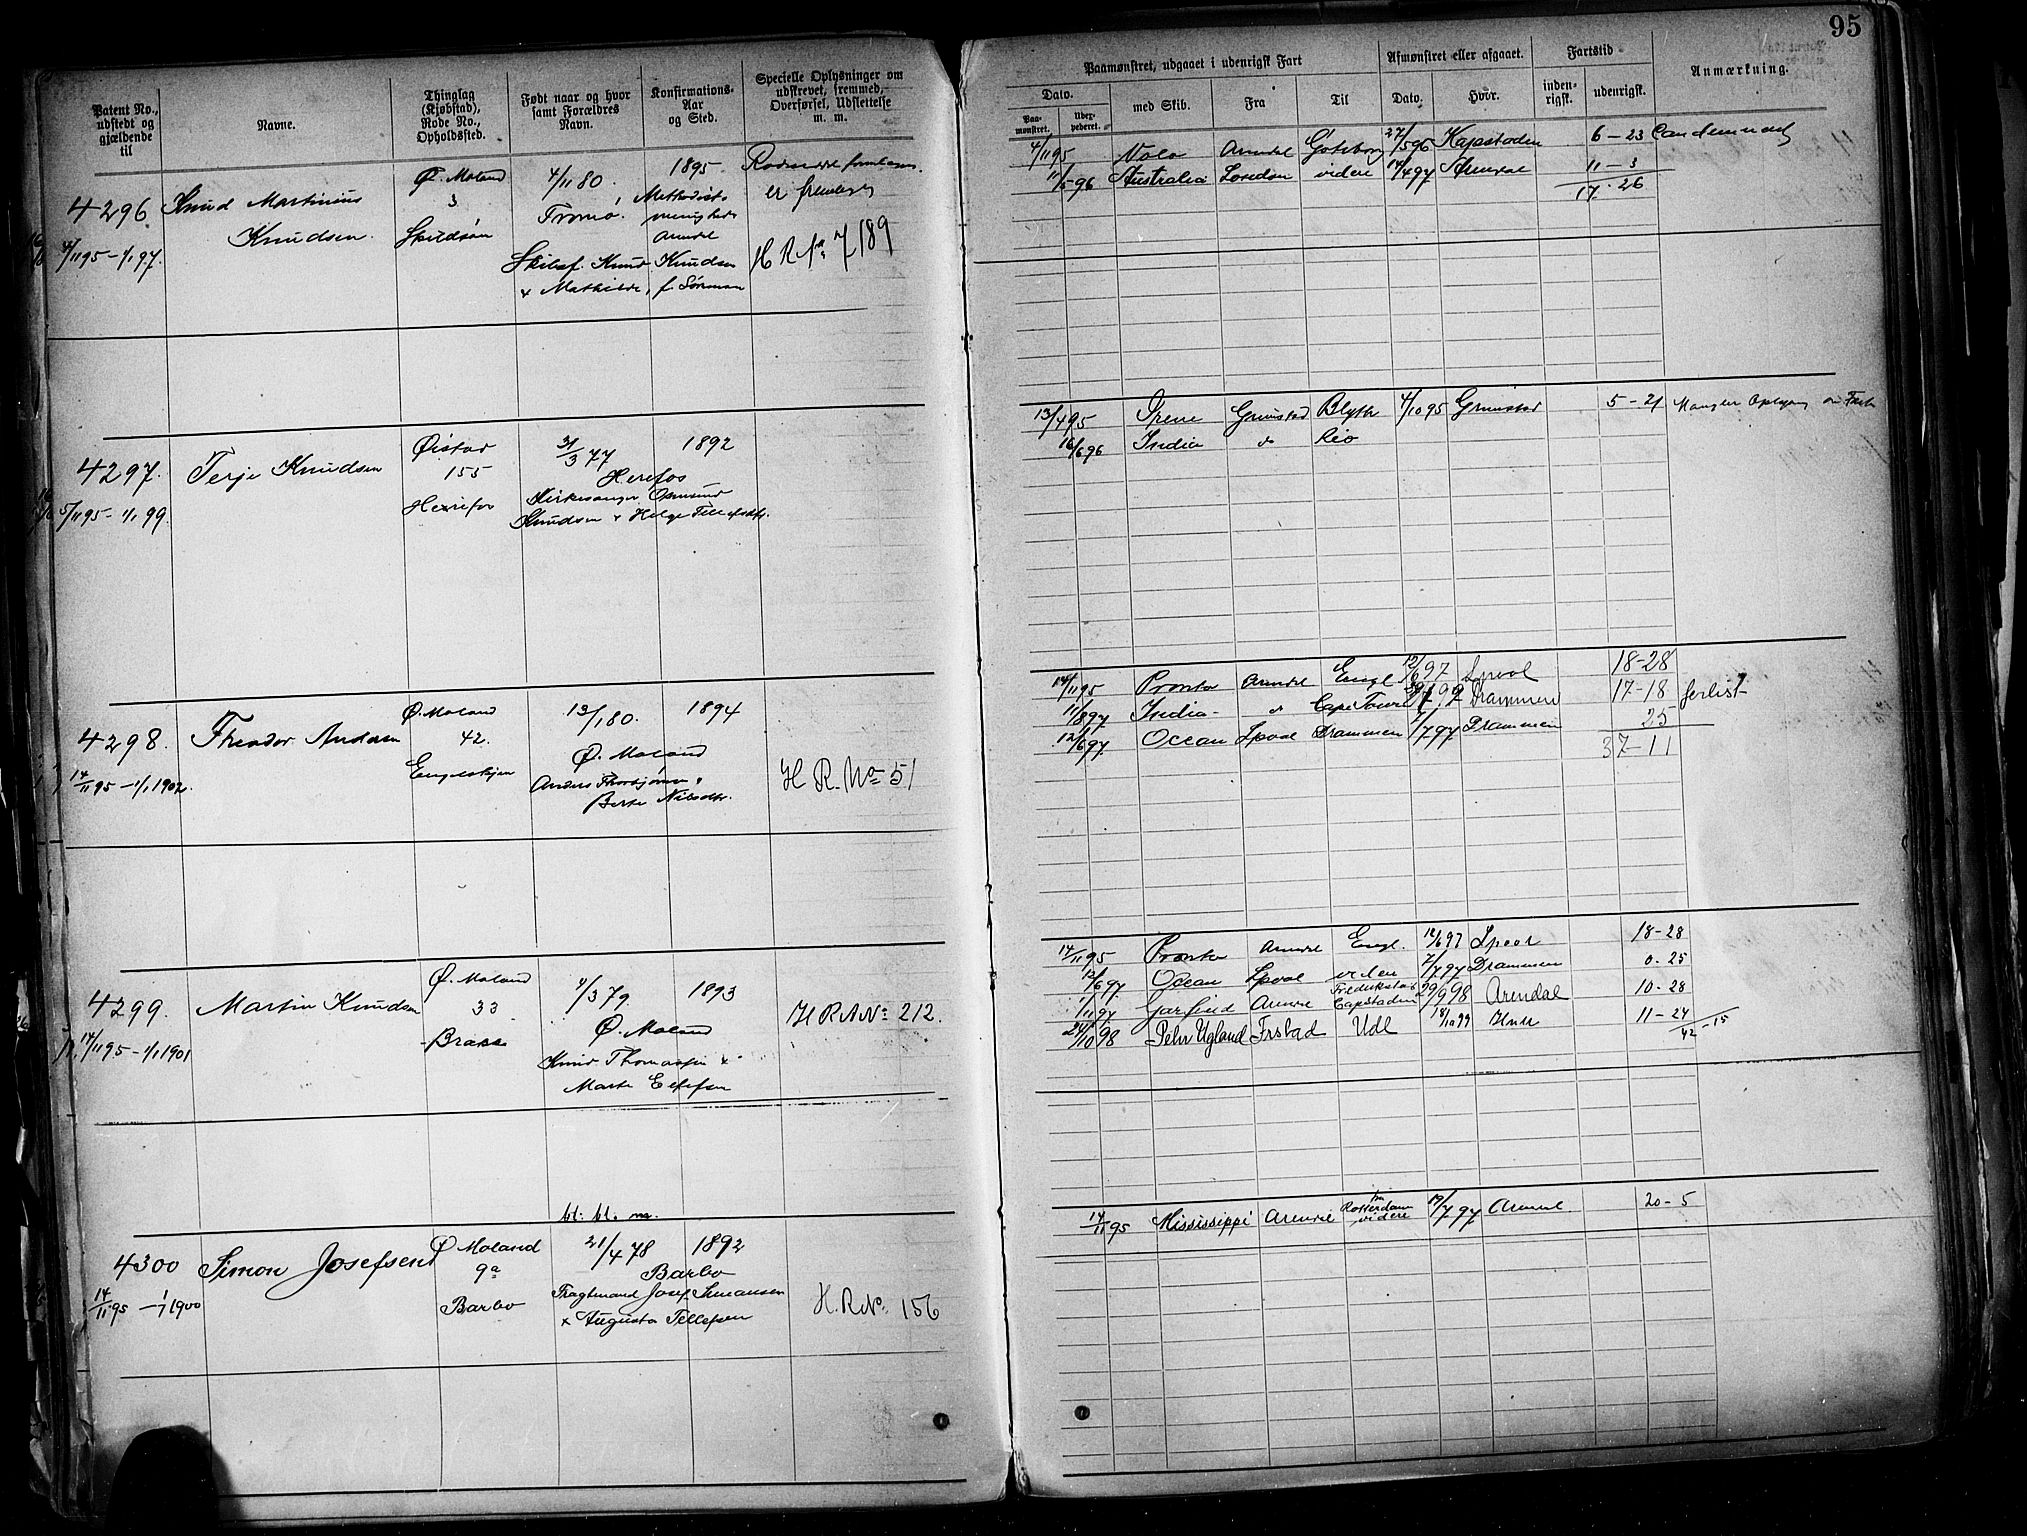 95
Patent No., udstedt og gjældende til
Navne.
Thinglag (Kjøbstad), Rode No., Opholdssted.
Født naar og hvor samt Forældres Navn.
Konfirmations-Aar og Sted.
Specielle Oplysninger om udskrevet, fremmed, Overførsel, Udslettelse m. m.
Paamønstret, udgaaet i udenrigsk Fart
Dato.
Paa-mønstret.
med Skib.
Fra
Til
Afmønstret eller afgaaet.
Dato.
Hvor.
Fartstid
inden-rigsk.
udenrigsk.
Anmærkning.
4296
4/11 95 - 1/1 97.
Knud Martinius
Knudsen.
Ø. Moland
3
4/11 80.
Tromø.
1895
Methodist-
menigheds
Arendal
Skibsf. Knud Knudsen
+ Mathilde, f. Sørensen
H R No 7189
4/11 95 Arendal Gøteborg 27/5 96 Kapstaden 6 - 23
11/5 96 Australia London videre 14/4 97 Arendal 11 - 3
17. 26
4297.
5/11 95 - 1/1 99.
Terje Knudsen
Øistad
155
Herefos
31/3 77
1892
Herefos
Kirkesanger Osmund
Knudsen + Helge Tellefsdtr.
13/4 95 Irene Grimstad Blyth 4/10 95 Grimstad 5 - 21 Mangler Oplysning om Fart
16/6 96 India do Rio
4298.
14/11 95 - 1/1 1902.
Theodor Andersen
Ø. Moland
42.
13/1 80.
1894
Ø. Moland
Anders Thorbjørnsen +
Berte Nilsdtr.
H R. No 51
14/11 95 Pronto Arendal Engl 12/6 97 Lpool 18-28
11/8 97 India do CapeTown Drammen 17-18 forlist
12/6 97 Ocean Lpool Drammen 7/7 97 Drammen 25
37-11
4299.
14/11 95 - 1/1 1901
Martin Knudsen
Ø. Moland
33
1893
Ø. Moland
Knud Thomassen +
Marte Ellefsen
H R No 212.
14/11 95 Pronto Arendal Engl. 12/6 97 Lpool 18-28
12/6 97 Ocean Lpool videre 7/7 97 Drammen 0-25
1/11 97 Garfield Arendal Fredrikstad Capstaden 29/9 98 Arendal 10-28
24/10 98 Pehr Ugland Frstad Udl 18/10 99 Hull 11-24
42-15
4300
14/11 95 - 1/1 1900
Simon Josefsen
Ø Moland
9a
Barbo
21/4 78
1892
Barbo
Fragtmand Josef Simonsen
+ Augusta Tellefsen
H. R No. 156
14/11 95 Mississippi Arendal fra Rotterdam videre 19/7 97 Arendal 20-5